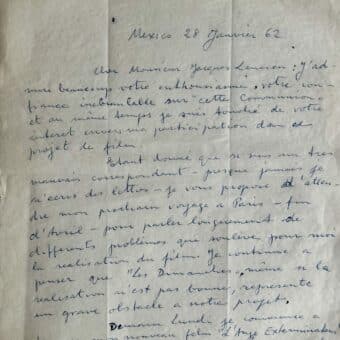 Mexico 28 Janvier 62
Cher Monsieur Jacques : J'ad-
mire beaucoup votre enthousiasme, votre con-
fiance inebranlable sur cette
et au même temps je suis touché de votre
interet envers ma participation dans ce
projet de film.
Etant donné que je suis un tres
mauvais correspondant - presque jamais je
n'écris des lettres - je vous propose d'atten-
dre mon prochain voyage à Paris - fin
d'Avril - pour parler longuement de
differents problèmes que soulève pour moi
la realisation du film. Je continue à
penser que "Les Dimanches", même si la
realisation n'est pas bonne, represente
un grave obstacle a notre projet.
Demain Lundi je commence à
nouveau film "L'Ange Exterminateur